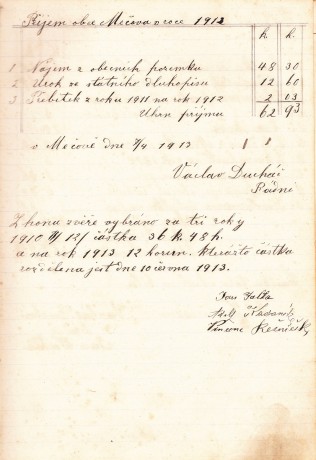 Příjem obce Mečova v roce 1912
K. h.
1 Nájem z obecních pozemků 48 30
2 Úrok ze státního dluhopisu 12 60
3 Přebitek z roku 1911 na rok 1912 2 03
Úhrn příjmu 62 93
v Mečově dne 7/4 1913
Václav
Radní
Z honu zvěře vybráno za tři roky
1910 11/ 12/ částka 36 K. 48 h.
a na rok 1913 12 korun. kterážto částka
rozdělena jest dne 10 února 1913.